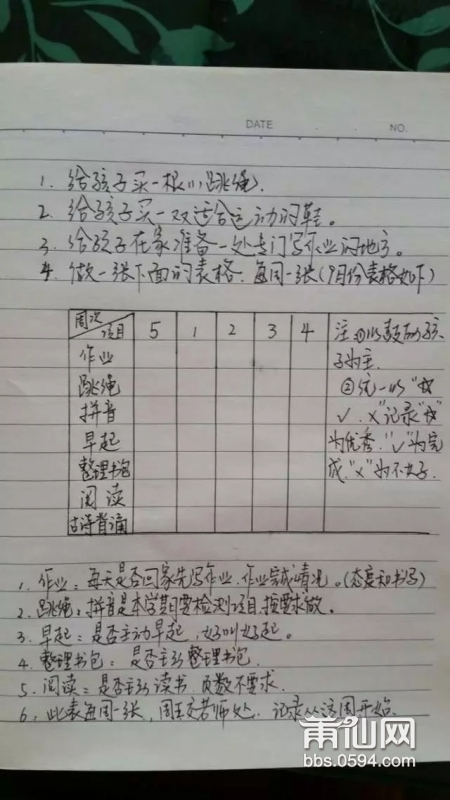 DATE NO.
1. 给孩子买一根小跳绳.
2. 给孩子买一双适合运动的鞋。
3. 给孩子在家准备一处专门写作业的地方。
4. 做一张下面的表格. 每周一张(9月份表格如下)
周次 项目 5 1 2 3 4 注:①以鼓励孩
作业 子为主.
跳绳 ②统一以"
拼音 √. ×"记录"
早起 为优秀."√"为完
整理书包 成."×"为不太好.
阅读
古诗背诵
1. 作业:每天是否回家先写作业. 作业完成情况。(态度和书写)
2. 跳绳:拼音是本学期要检测项目,按要求做。
3. 早起:是否主动早起,好叫好起。
4. 整理书包:是否主动整理书包.
5. 阅读:是否主动读书. 页数不要求.
6. 此表每周一张,周五交老师处. 记录从这周开始.
莆仙网
bbs.0594.com